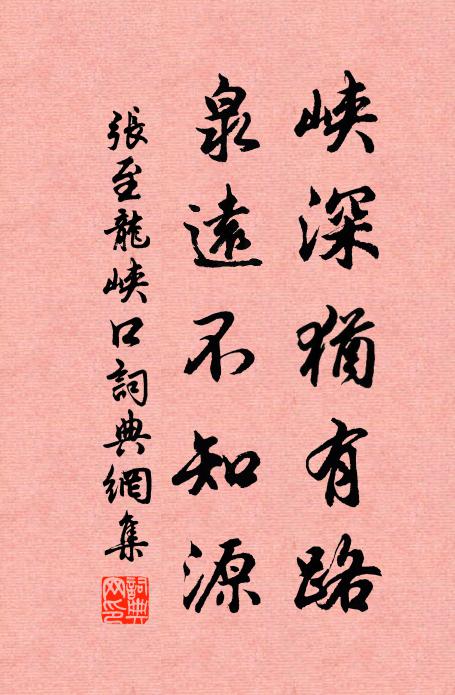 峽深猶有路
泉遠不知源
張至龍峽口詞典網集
詞典網印